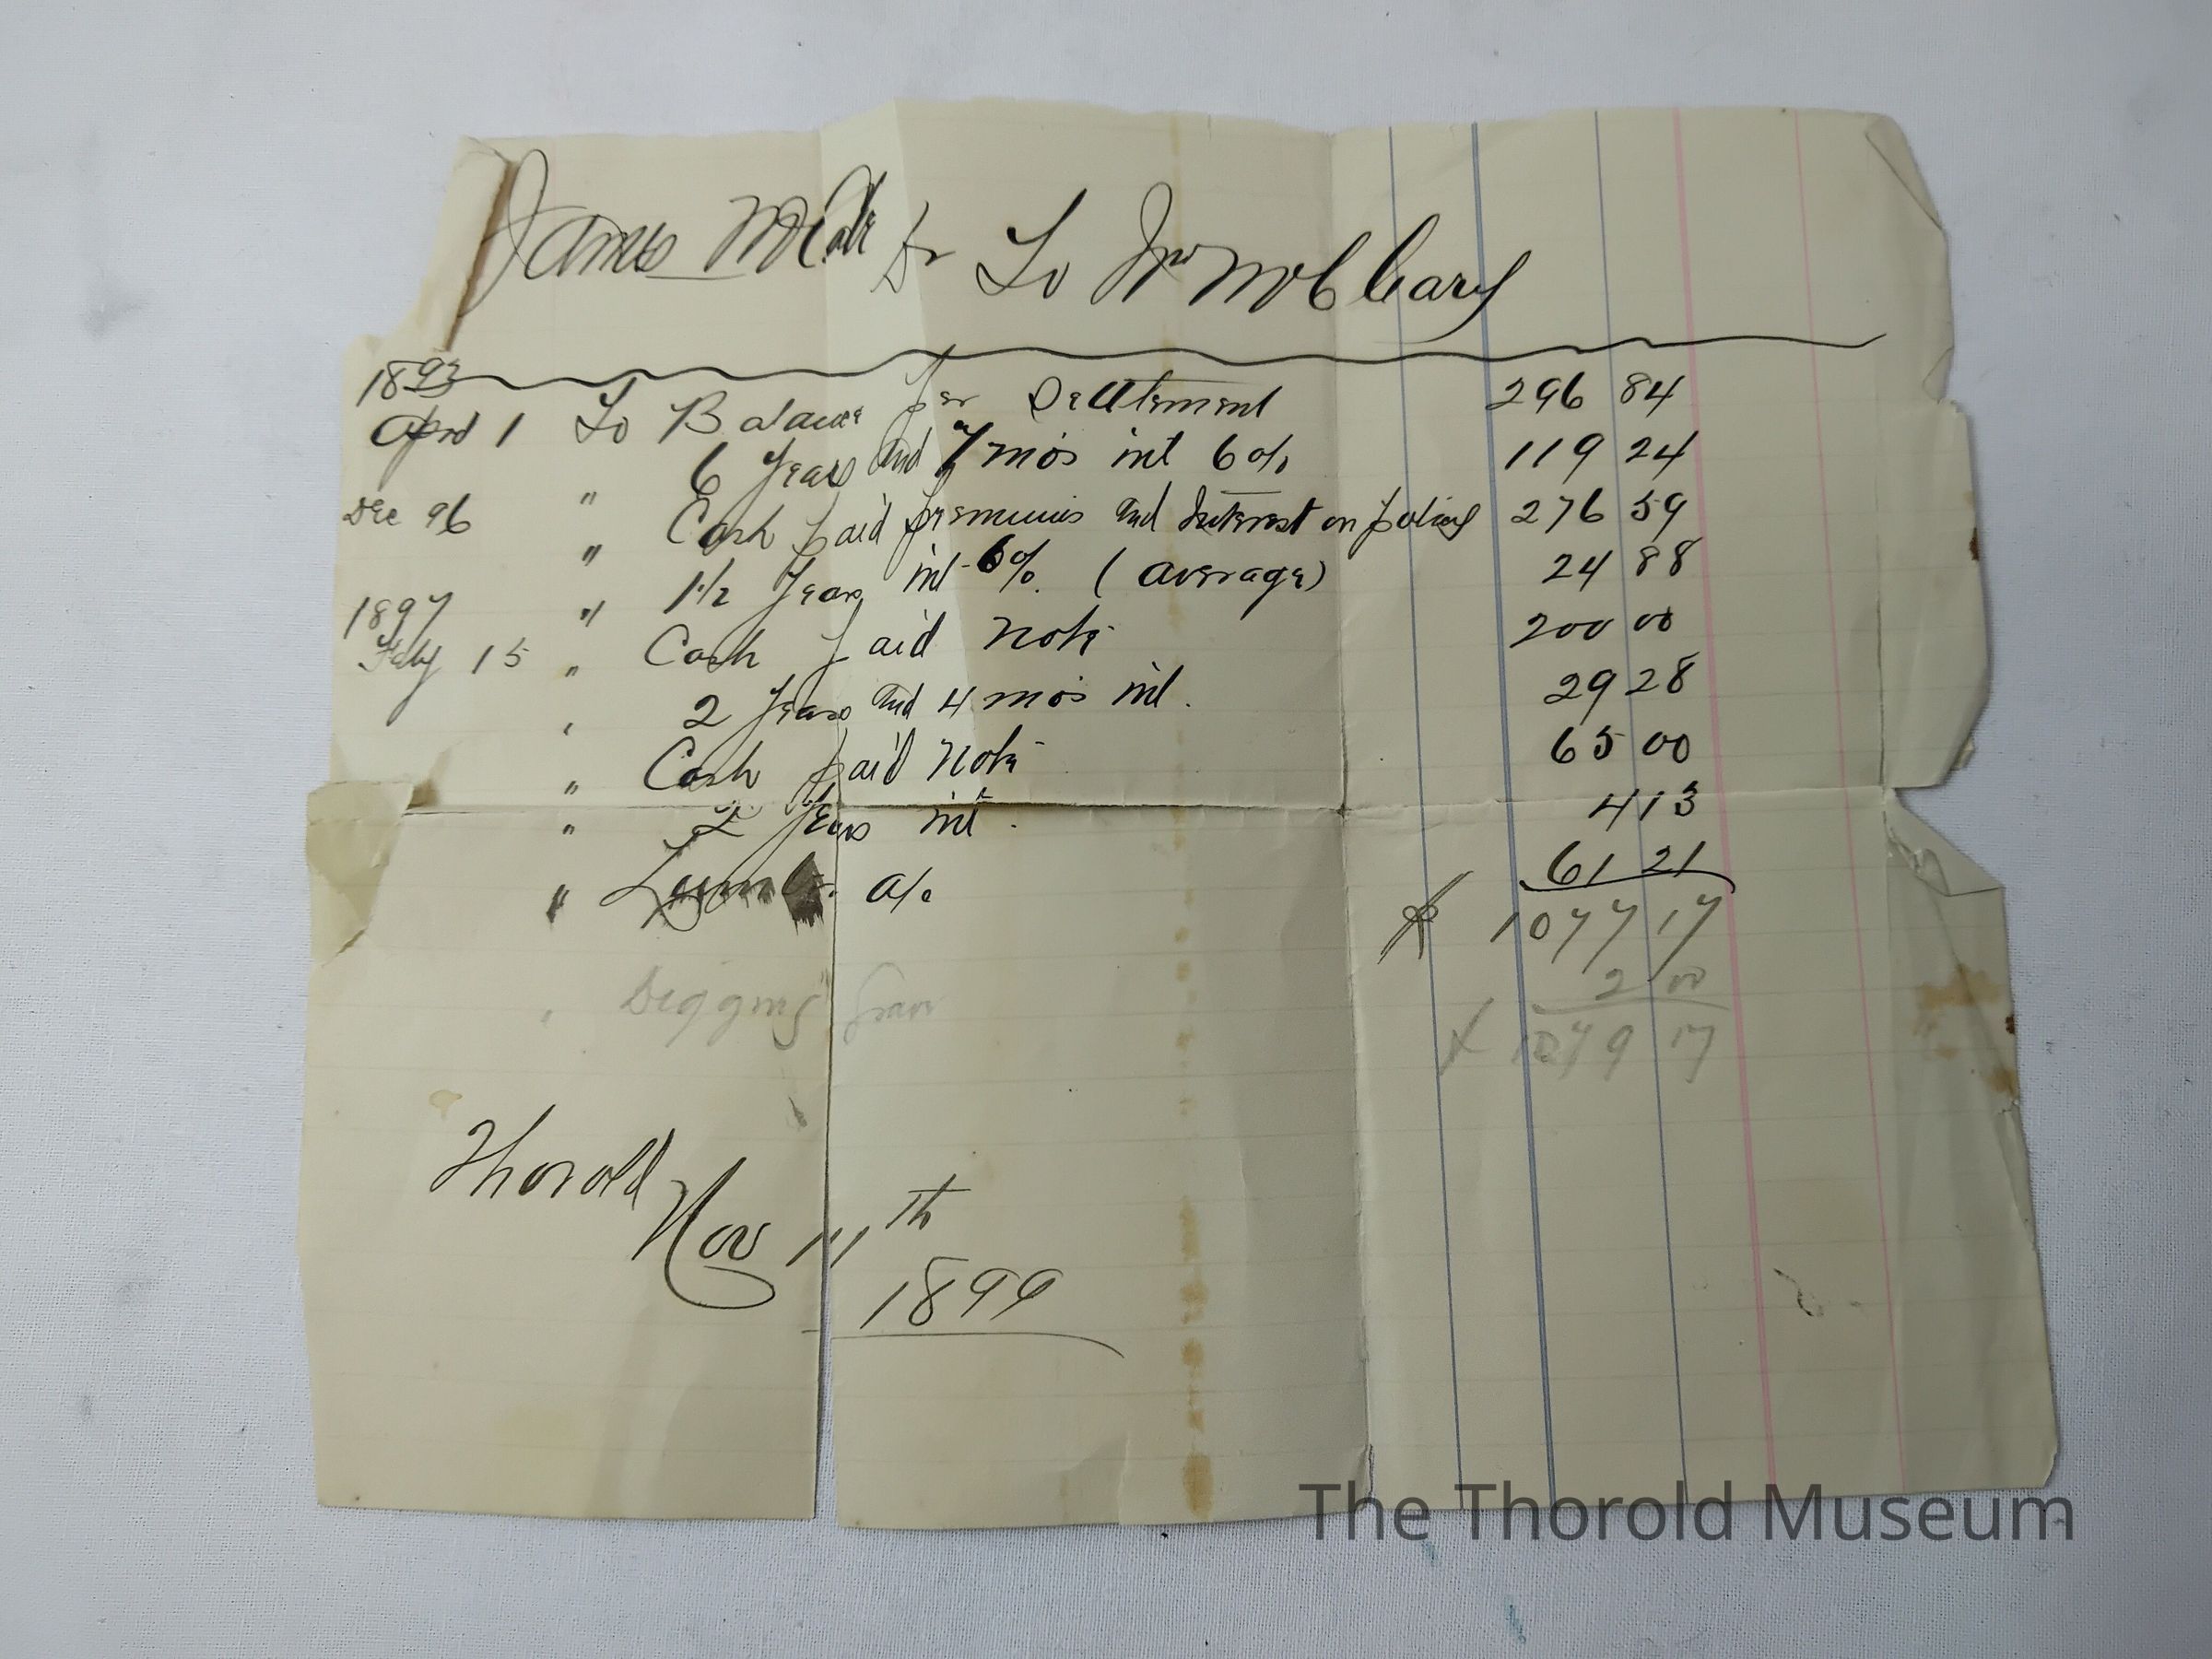 James McCabe Dr To Wm McCleary
1893
April 1 To Balance per Settlement 296 84
6 Years and 7 mos int 6% 119 24
Dec 96 " Cash paid premiums and Interest on policy 276 59
" 1 1/2 Years int 6% (average) 24 88
1897
Feby 15 " Cash paid Note 200 00
" 2 Years and 4 mos int. 29 28
" Cash paid Note 65 00
" 2 Years int. 4 13
" Lumber a/c 61 21
1077 17
" Digging 2 00
1079 17
Thorold
Nov 11th
1899
The Thorold Museum